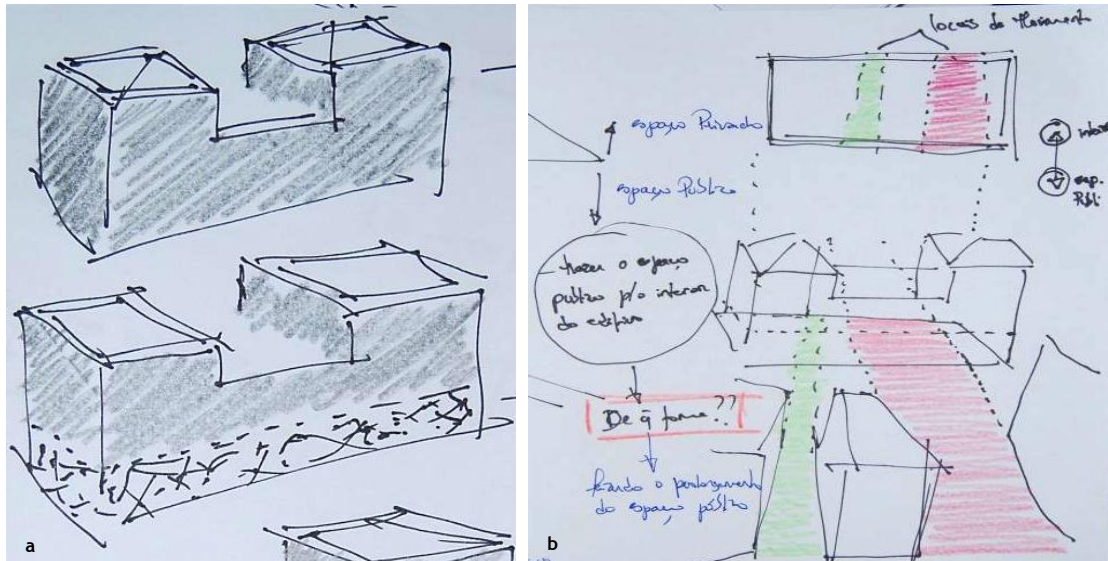 a
b
locais de
espaço Privado
espaço Público
esp.
trazer o espaço
publico p/o interior
do edifício
De q̄ forma??
fazendo o prolongamento
do espaço público